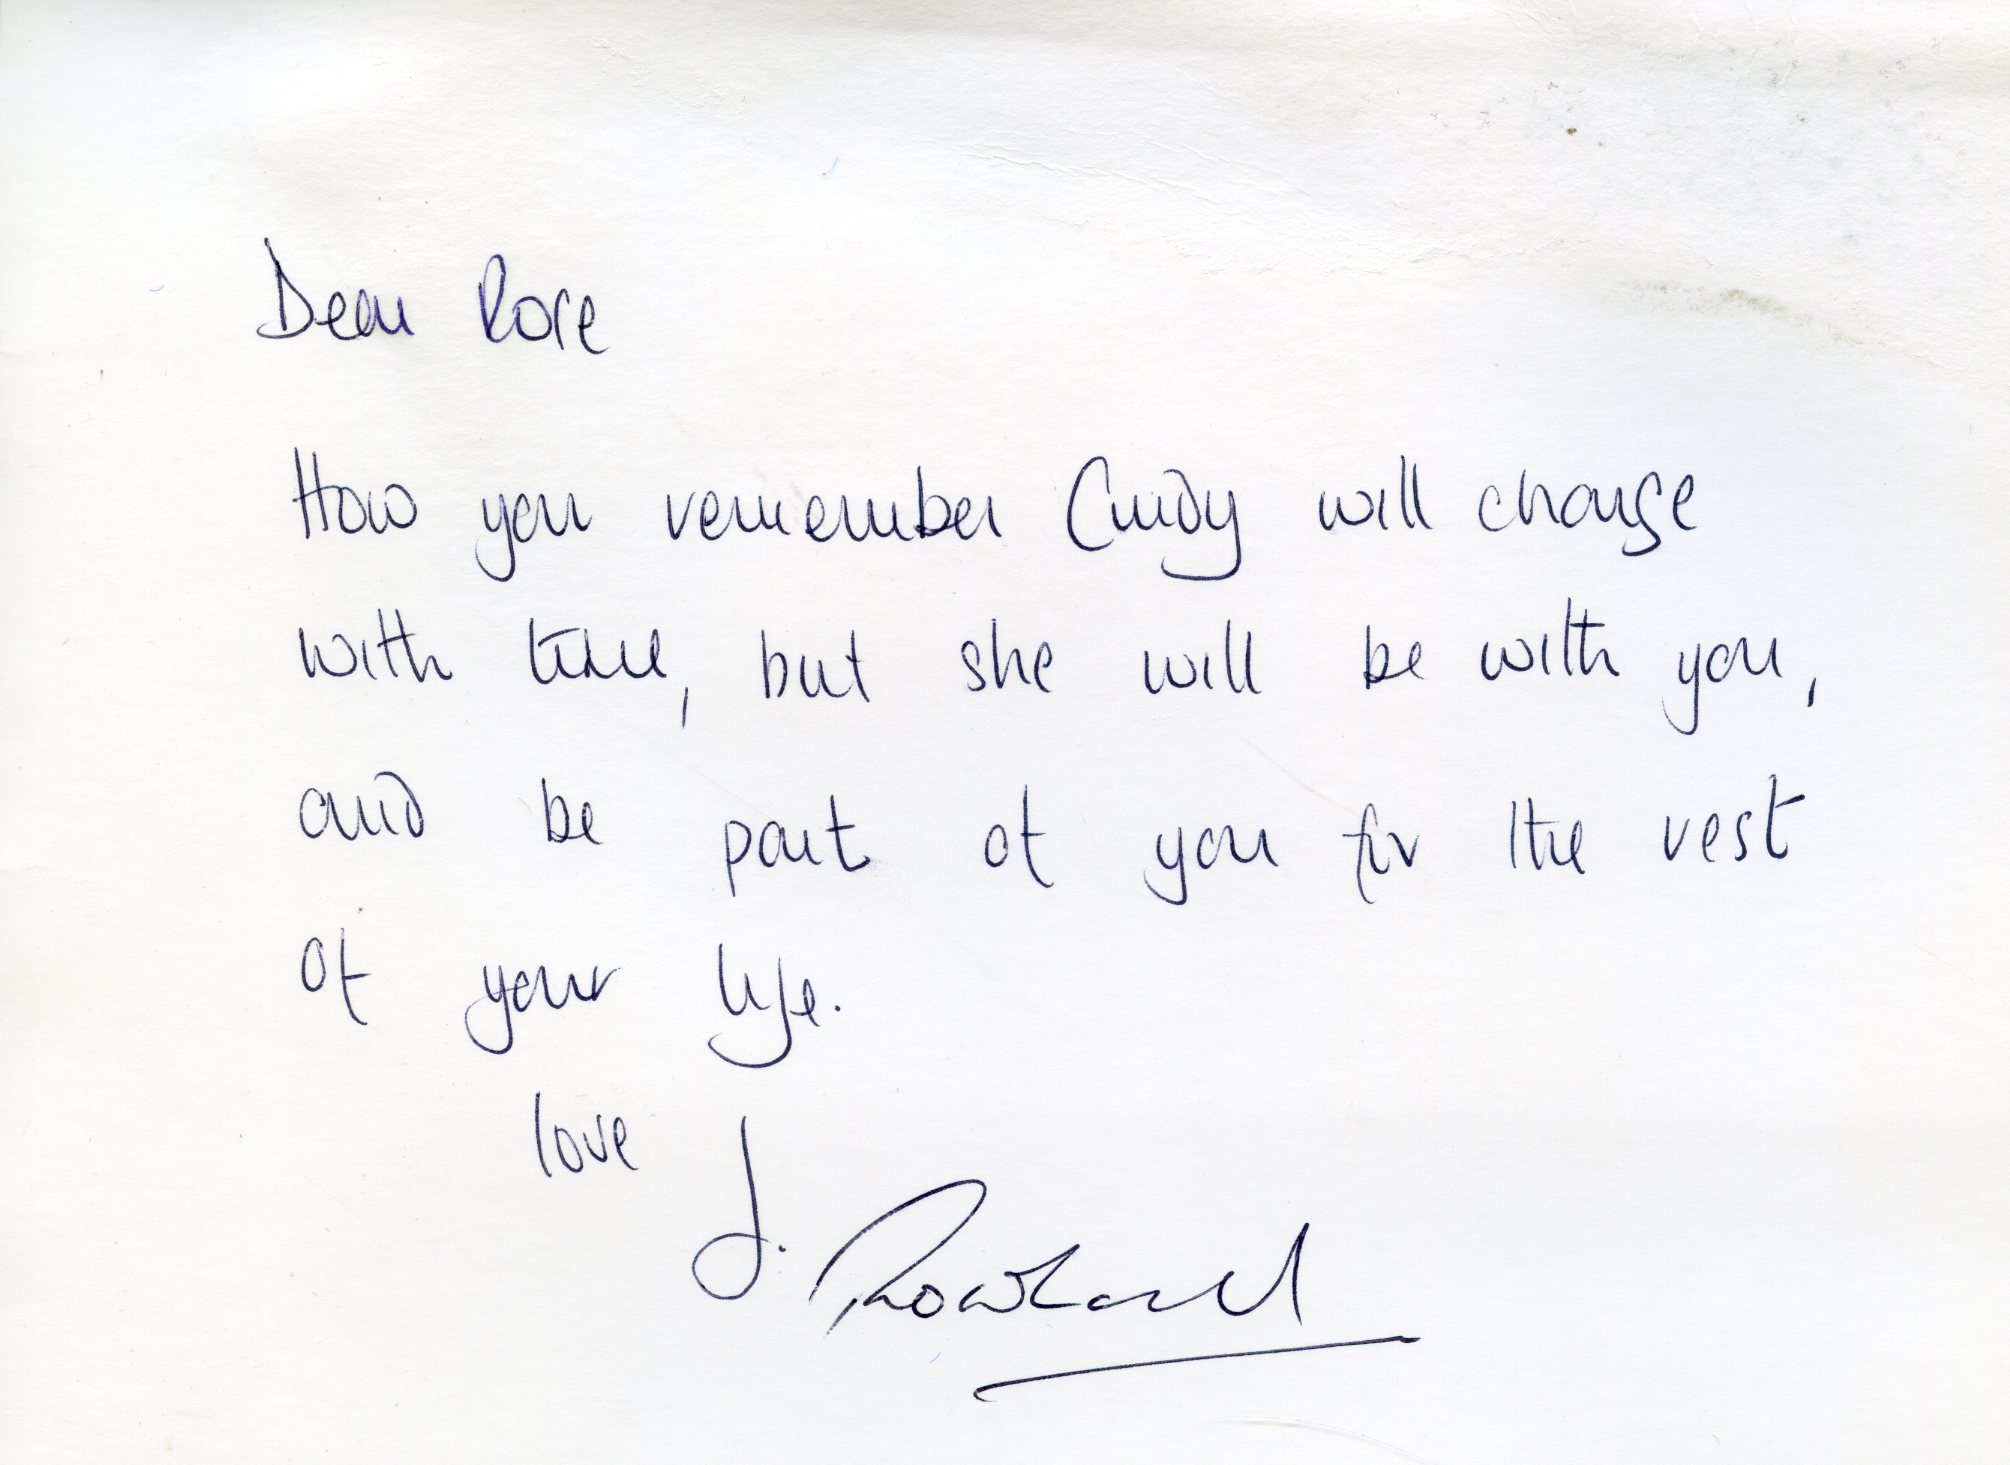 Dear Rose
How you remember Cindy will change
with time, but she will be with you,
and be part of you for the rest
of your life.
love J.